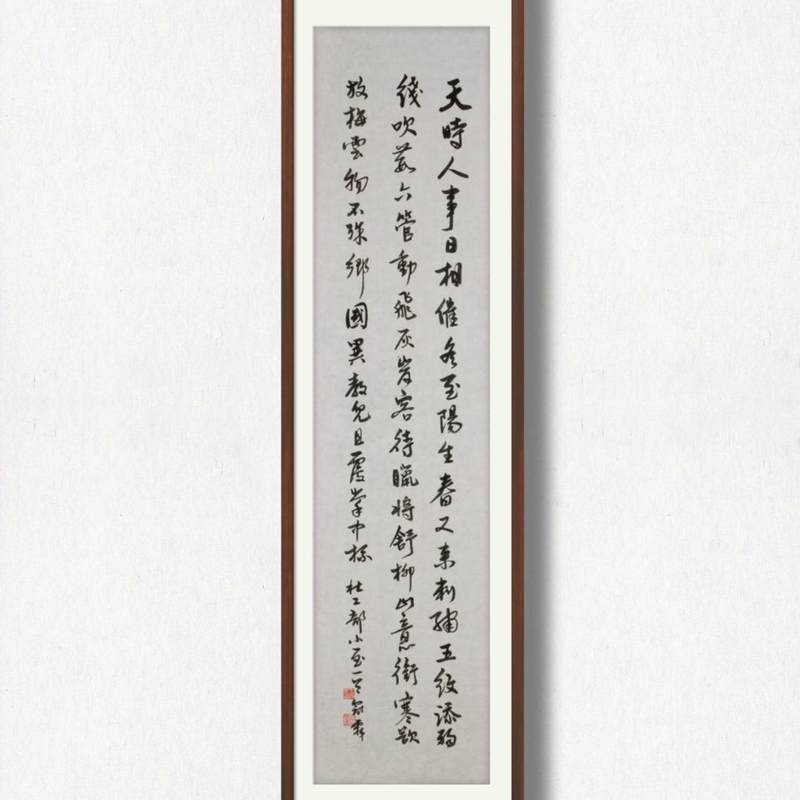 天時人事日相催冬至陽生春又來刺繡五紋添弱
綫吹葭六管動飛灰岸容待臘將舒柳山意衝寒欲
放梅雲物不殊鄉國異教兒且覆掌中杯 杜工部小至一首